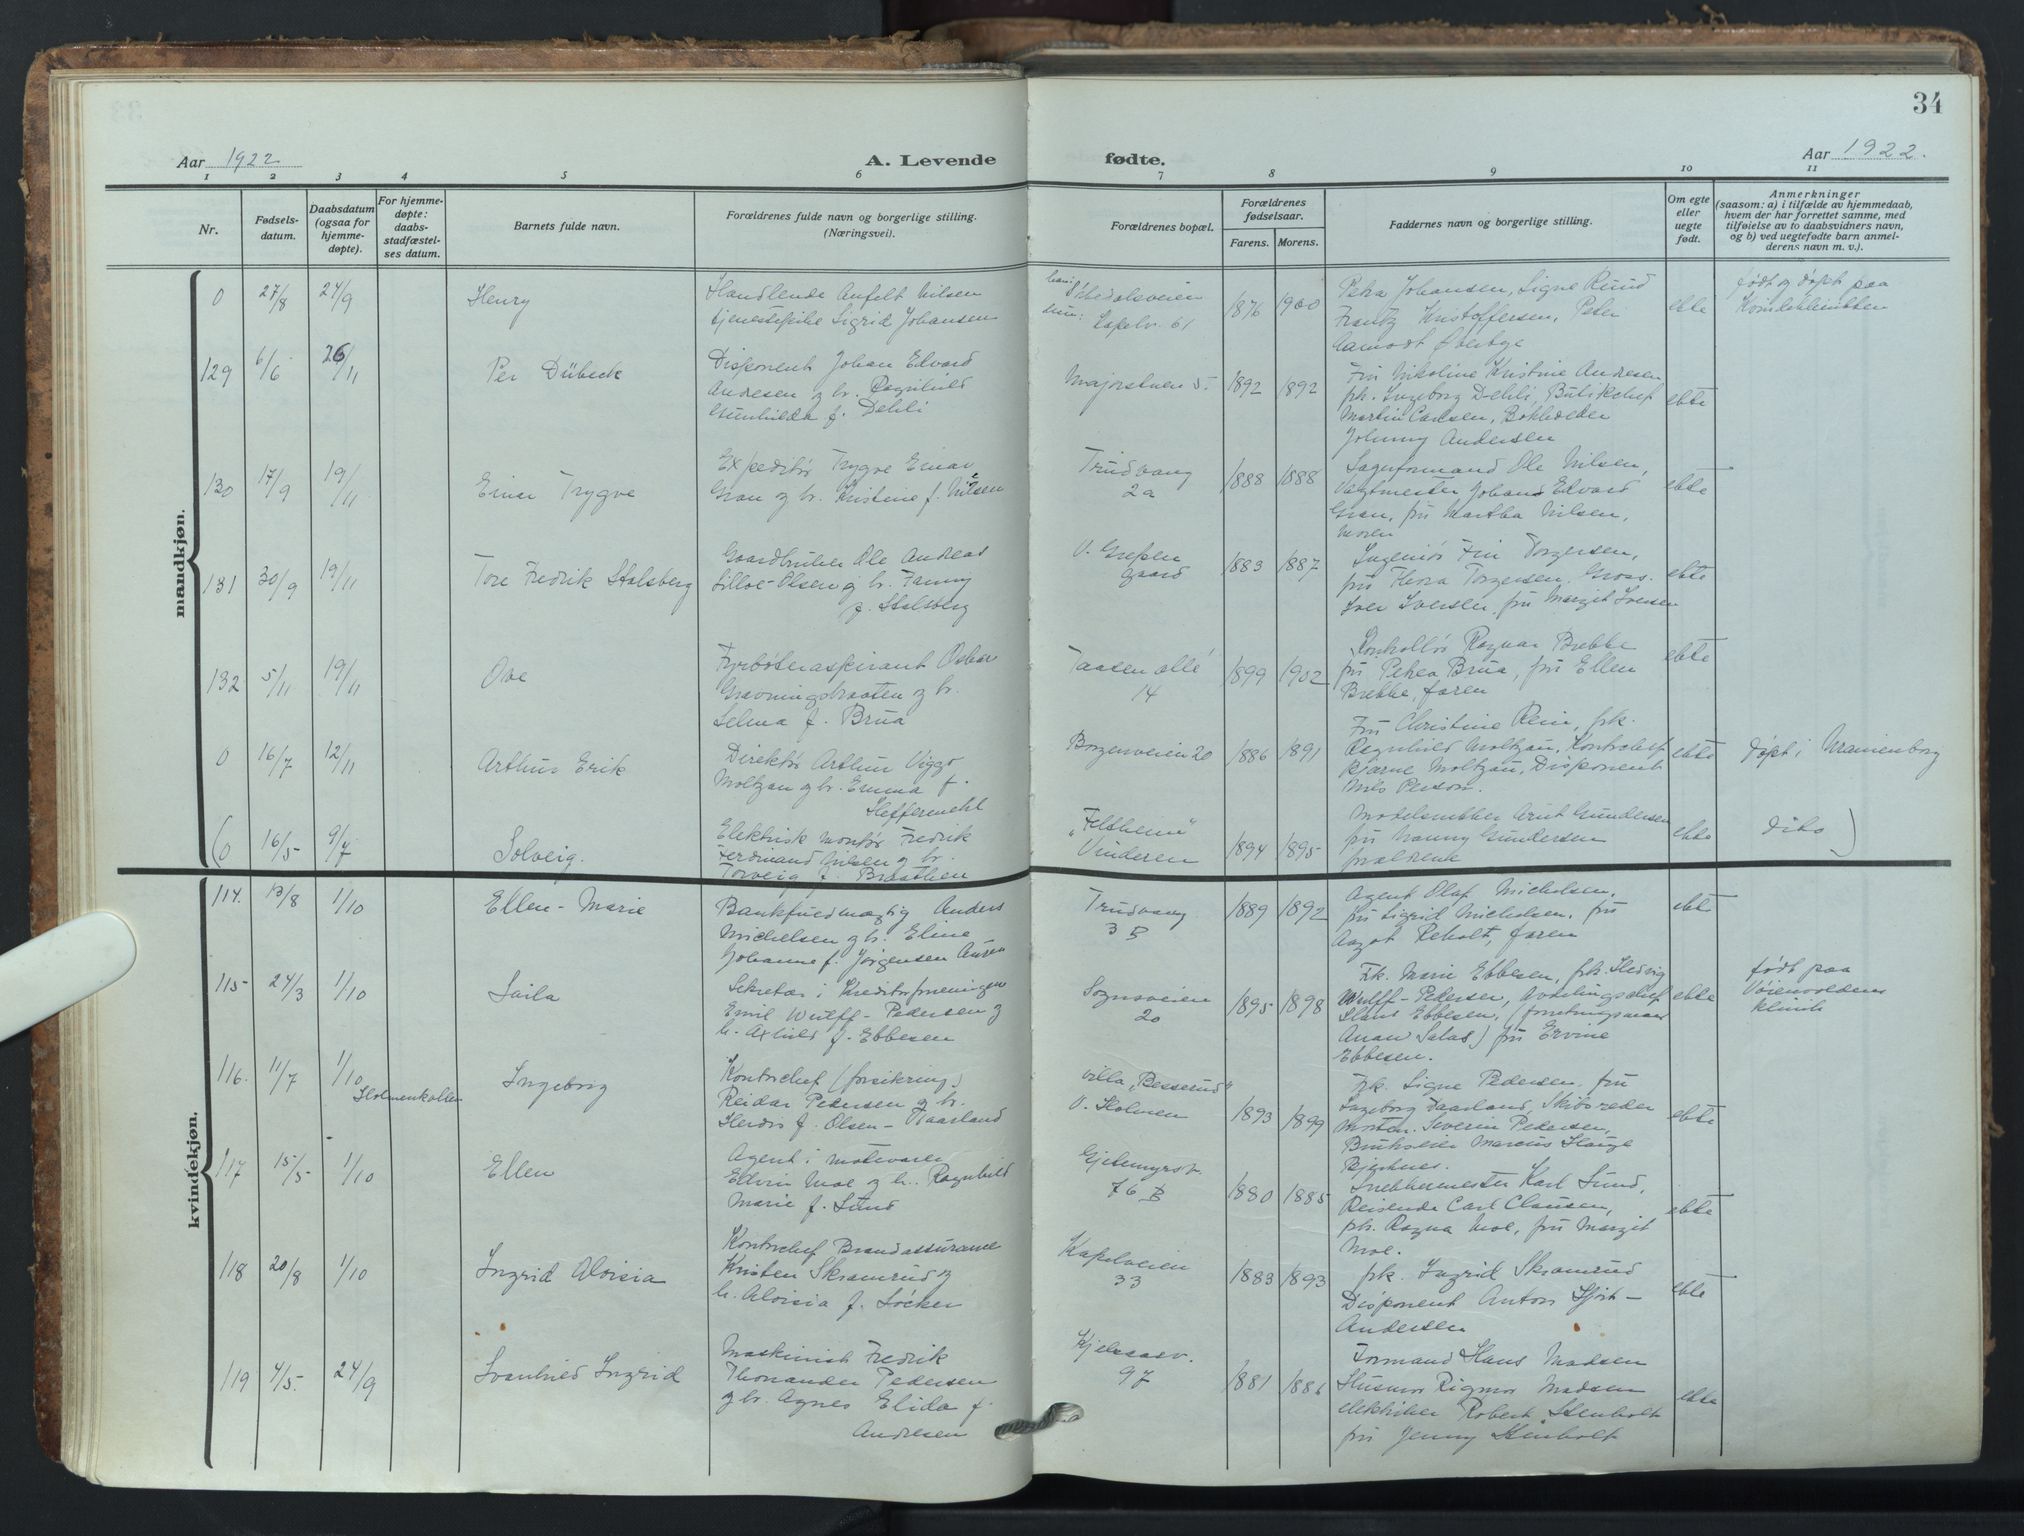 34
Aar 1922
A. Levende
fødte.
Aar 1922.
1 2 3 4 5 6 7 8 9 10 11
Nr.
Fødsels-
datum.
Daabsdatum
(ogsaa for
hjemme-
døpte).
For hjemme-
døpte:
daabs-
stadfæstel-
ses datum.
Barnets fulde navn.
Forældrenes fulde navn og borgerlige stilling.
(Næringsvei).
Forældrenes bopæl.
Forældrenes
fødselsaar.
Farens. Morens.
Faddernes navn og borgerlige stilling.
Om egte
eller
uegte
født.
Anmerkninger
(saasom: a) i tilfælde av hjemmedaab,
hvem der har forrettet samme, med
tilføielse av to daabsvidners navn,
og b) ved uegtefødte barn anmel-
derens navn m. v.).
mandkjøn.
0 27/8 24/9 Henry
Handlende Anfelt Nilsen
tjenestepike Sigrid Johansen
Kapelv. 61
1876 1900
Petra Johansen, Signe Ruud
Frantz Kristoffersen, Peter
Aamodt Øverbye
ekte
født og døpt paa
Kvindeklinikken
129 6/6 26/11 Per Dübeck
Disponent Johan Edvard
Andresen og h. Ragnhild
Gunhilda f. Dehli
Majorstuen 5.
1892 1892
Fru Nikoline Kristine Andresen
frk. Ingeborg Dehli, Butikchef
Martin Carlsen, Bokholder
Johnny Andersen
ekte
130 17/9 19/11 Einar Trygve
Expeditør Trygve Einar
Gran og h. Kristine f. Nilsen
Trudvang
2a
1888 1888
Sagformand Ole Nilsen,
Vagtmester Johan Edvard
Gran, fru Martha Nilsen,
Moren
ekte
131 30/9 19/11 Tore Fredrik Stalsberg
Gaardbruker Ole Andreas
Lilloe-Olsen og h. Fanny
f. Stalsberg
V. Grefsen
gaard
1883 1887
Ingeniør Finn Torgersen,
fru Thora Torgersen, Gross.
Iver Iversen, fru Margit Iversen
ekte
132 5/11 19/11 Ove
Fyrbøteraspirant Oskar
Gravningsbraaten og h.
Selma f. Brua
Taasen allé
14
1899 1902
Kontrollør Ragnar Brekke
fru Petra Brua, fru Ellen
Brekke, faren
ekte
0 16/7 12/11 Arthur Erik
Direktør Arthur Viggo
Moltzau og h. Emma f.
Heffermehl
Borgenveien 20
1886 1891
Fru Christine Rein, frk.
Ragnhild Moltzau, Kontorchef
Bjarne Moltzau, Disponent
Nils Person.
ekte
døpt i Uranienborg
(0 16/5 9/7 Solveig.
Elektrisk montør Fredrik
Ferdinand Nilsen og h.
Torveig f. Braathen
"Feltheim"
Vinderen
1894 1895
Modelsnekker Arnt Gundersen
fru Nanny Gundersen
forældrene
ekte
dito )
kvindekjøn.
114. 13/8 1/10 Ellen-Marie
Bankfuldmægtig Anders
Michelsen og h. Eline
Johanne f. Jørgensen Auren
Trudvang
3 B
1889 1892
Agent Olaf Michelsen,
fru Sigrid Michelsen, fru
Aagot Reholt, faren
ekte
115 24/3 1/10 Laila
Sekretær i Kreditorforeningen
Emil Wulff-Pedersen og
h. Axhild f. Ebbesen
Sognsveien
20
1895 1898
Frk. Marie Ebbesen, frk. Hedvig
Wulff-Pedersen, Avdelingschef
Hans Ebbesen, (forretningsmann
Anan Salas) fru Ervine
Ebbesen.
ekte
født paa
Vøienvoldens
klinik
116. 11/7 1/10
Holmenkollen
Ingeborg
Kontorchef (forsikring)
Reidar Pedersen og h.
Herdis f. Olsen-Taarland
villa "Besserud"
V. Holmen
1893 1899
Frk. Signe Pedersen, fru
Ingeborg Taarland, Skibsreder
Morten Severin Pedersen,
Brukseier Marcus Hauge
Bjerknes.
ekte
117 15/5 1/10 Ellen
Agent i motevarer
Edvin Moe og h. Ragnhild
Marie f. Sund
Gjetemyrsv.
76 B
1880 1885
Snekkermester Karl Sund,
Reisende Carl Clausen,
frk. Ragna Moe, fru Margit
Moe.
ekte
118 20/8 1/10 Ingrid Aloisia
Kontorchef Brandassurance
Kristen Skramrud og
h. Aloisia f. Løcker
Kapelveien
33
1883 1893
frk. Ingrid Skramrud
Disponent Anton Hjort-
Andersen
ekte
119 4/5. 24/9 Svanhild Ingrid
Maskinist Fredrik
Thorander Pedersen
og h. Agnes Elida f.
Andresen
Kjelsaasv.
97
1881 1886
Formand Hans Madsen
Husmor Rigmor Madsen
elektriker Robert Stenholt
fru Jenny Stenholt
ekte